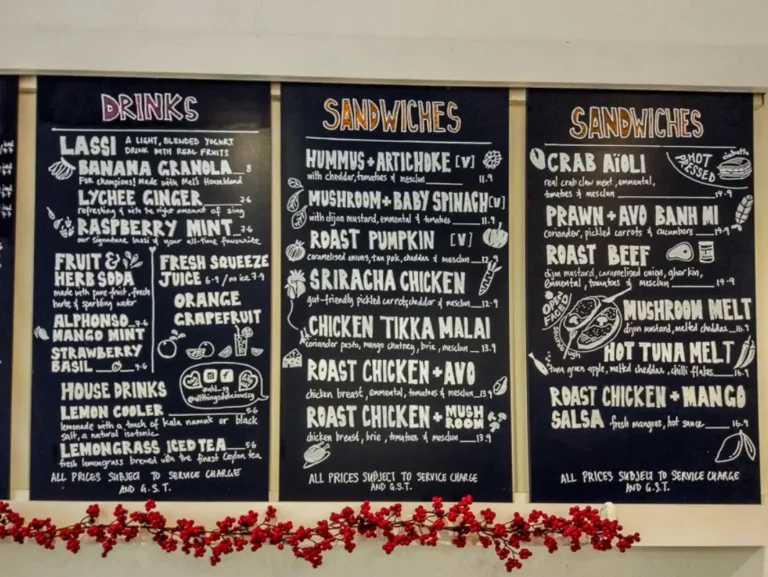 DRINKS
LASSI A LIGHT, BLENDED YOGURT
DRINK WITH REAL FRUITS
BANANA GRANOLA 8
For champions! Made with Mel's Houseblend
LYCHEE GINGER 7.6
refreshing & with the right amount of zing
RASPBERRY MINT 7.6
our signature lassi & your all-time favourite
FRUIT &
HERB SODA
made with pure fruit, fresh
herbs & sparkling water
ALPHONSO 7.6
MANGO MINT
STRAWBERRY
BASIL 7.6
FRESH SQUEEZE
JUICE 6.9 / no ice 7.9
ORANGE
GRAPEFRUIT
HOUSE DRINKS
@allthingsdelicioussg
LEMON COOLER 5.6
lemonade with a touch of kala namak or black
salt, a natural isotonic
LEMONGRASS ICED TEA 5.6
fresh lemongrass brewed with the finest Ceylon tea
ALL PRICES SUBJECT TO SERVICE CHARGE
AND G.S.T.
SANDWICHES
HUMMUS + ARTICHOKE [V]
with cheddar, tomatoes & mesclun 11.9
MUSHROOM + BABY SPINACH [V]
with dijon mustard, emmental & tomatoes 11.9
ROAST PUMPKIN [V]
caramelised onions, tau pok, cheddar & mesclun 12.9
SRIRACHA CHICKEN
gut-friendly pickled carrots, cheddar & mesclun 12.9
CHICKEN TIKKA MALAI
coriander pesto, mango chutney, brie, mesclun 13.9
ROAST CHICKEN + AVO
chicken breast, emmental, tomatoes & mesclun 13.9
ROAST CHICKEN + MUSH
ROOM
chicken breast, brie, tomatoes & mesclun 13.9
ALL PRICES SUBJECT TO SERVICE CHARGE
AND G.S.T.
SANDWICHES
HOT
PRESSED
ciabatta
CRAB AiOLI
real crab claw meat, emmental,
tomatoes & mesclun 14.9
PRAWN + AVO BANH MI
coriander, pickled carrots & cucumbers 14.9
ROAST BEEF
dijon mustard, caramelised onion, gherkin,
emmental, tomatoes & mesclun 14.9
OPEN
FACED
MUSHROOM MELT
dijon mustard, melted cheddar 16.9
HOT TUNA MELT
tuna, green apple, melted cheddar, chilli flakes 16.9
ROAST CHICKEN + MANGO
SALSA fresh mangoes, hot sauce 16.9
ALL PRICES SUBJECT TO SERVICE CHARGE
AND G.S.T.